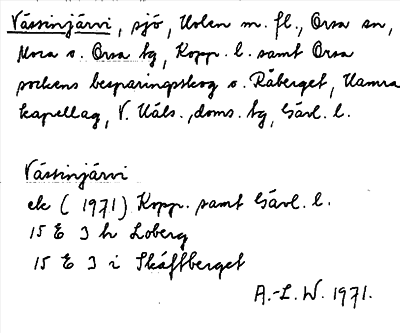 Västinjärvi, sjö, Holen m. fl., Orsa sn,
Mora o. Orsa tg, Kopp. l. samt Orsa
sockens besparingsskog o. Råberget, Hamra
kapellag, V. Häls. doms. tg, Gävl. l.
Västinjärvi
ek (1971) Kopp. samt Gävl. l.
15 E 3 h Loberg
15 E 3 i Skåftberget
A.-L. W. 1971.